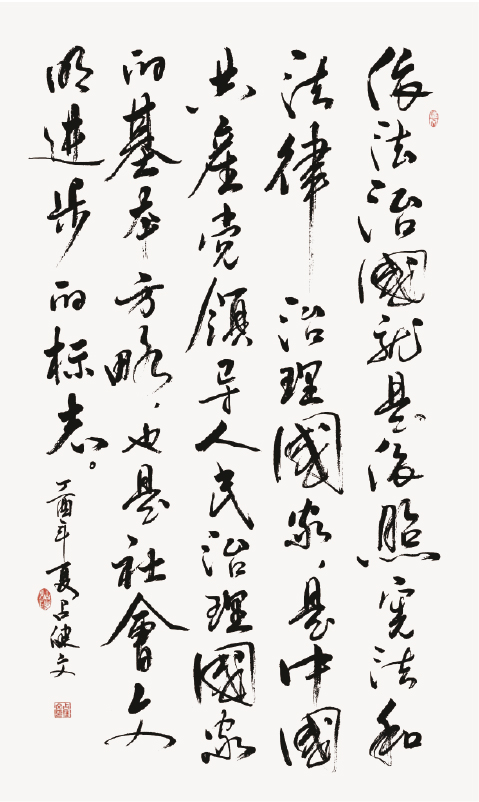 依法治國就是依照憲法和
法律治理國家，是中國
共產党領导人民治理國家
的基本方略，也是社會文
明进步的标志。
丁酉年夏占健文